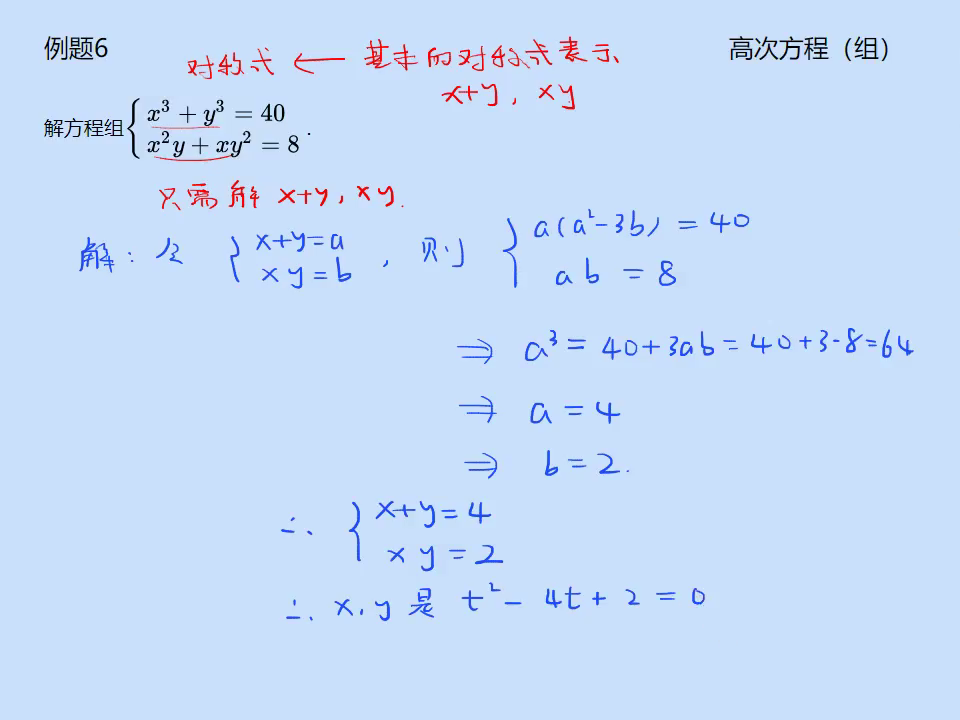 例题6
高次方程（组）
对称式 ⟵ 基本的对称式表示
x+y, xy
解方程组 { x³ + y³ = 40
x²y + xy² = 8 .
只需解 x+y, xy.
解: 令 { x+y=a
xy=b , 则 { a(a²-3b) = 40
ab = 8
⇒ a³ = 40+3ab = 40+3·8=64
⇒ a = 4
⇒ b = 2.
∴ { x+y=4
xy=2
∴ x, y 是 t² - 4t + 2 = 0